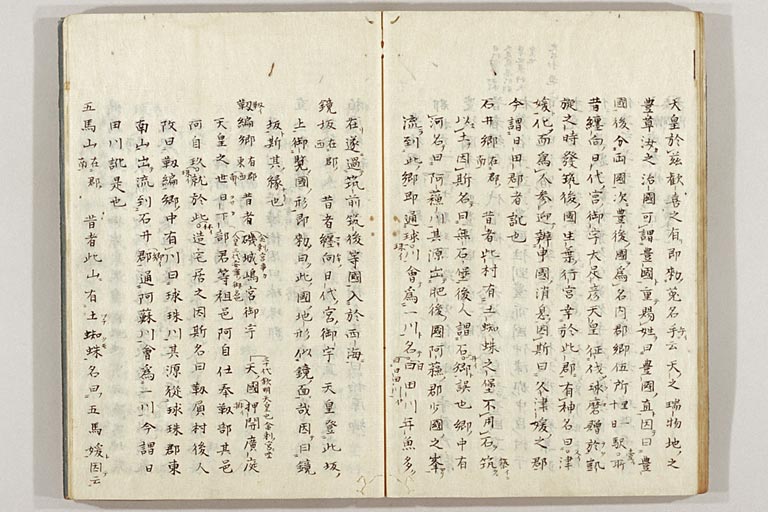 天皇於茲歡喜之有即勅菟名手云天之瑞物地之
豐草汝之治國可謂豐國重賜姓曰豐國直因曰豐
國後分兩國次豐後國爲名肉郡鄉伍所 十一 駅
昔纏向日代宮御宇大足彥天皇征伐球磨贈於凱
旋之時發筑後國生葉行宮幸於此郡有神名曰久津
媛化而爲人參迎辨申國消息因斯曰久津媛之郡
今謂日田郡者訛也
石井鄉 在郡南 昔者此村有土蜘蛛之堡不用石築
以土因斯名曰無石堡後人謂石井鄉誤也鄉中有
河名曰阿蘇川其源出肥後國阿蘇郡少國之峯
流到此鄉即通球珠川會爲一川名曰日田川年魚多
在遂過筑前筑後等國入於西海
鏡坂 在郡西 昔者纏向日代宮御宇天皇登此坂
上御覽國形即勅曰此國地形似鏡面哉因曰鏡
坂斯其緣也
靱編鄉 有郡東南 昔者磯城嶋宮御宇天國押開廣庭
天皇之世日下部君等祖邑阿自仕奉靱部其邑
阿自玖就於此村造宅居之因斯名曰靱負村後人
改曰靱編鄉中有川曰球珠川其源從球珠郡東
南山出流到石井鄉通阿蘇川會爲一川今謂日
田川訛是也
五馬山 在郡南 昔者此山有土蜘蛛名曰五馬媛因云